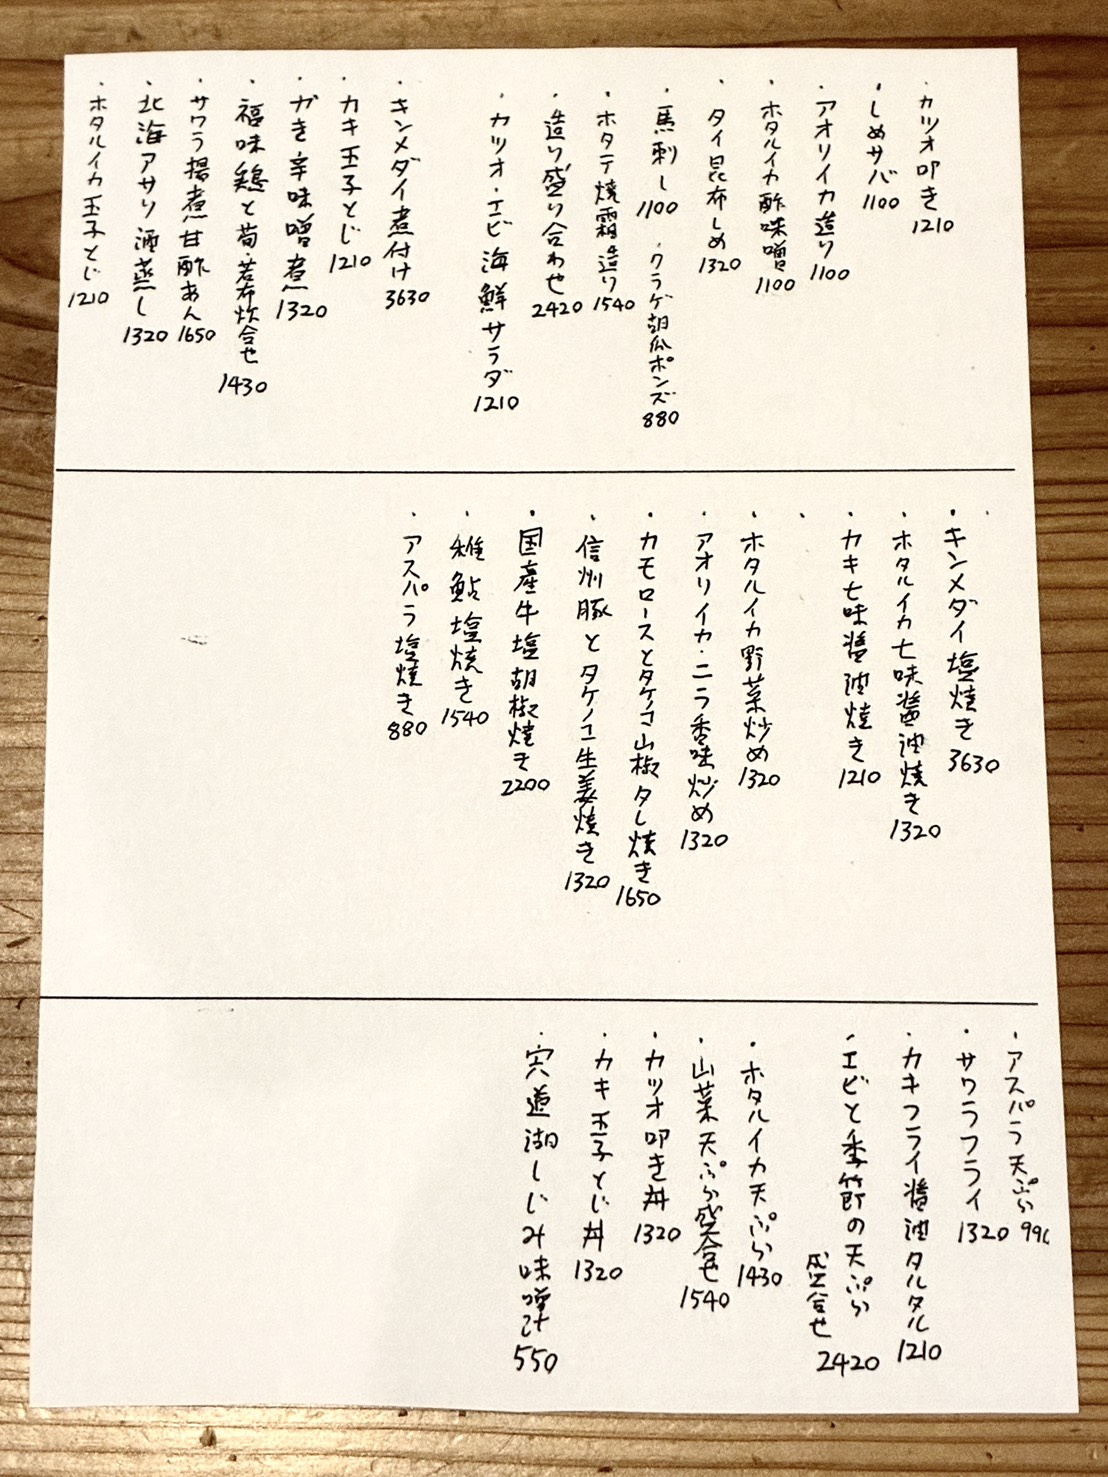 ・カツオ叩き 1210
・しめサバ 1100
・アオリイカ造り 1100
・ホタルイカ酢味噌 1100
・タイ昆布しめ 1320
・馬刺し 1100
・クラゲ胡瓜ポンズ 880
・ホタテ焼霜造り 1540
・造り盛り合わせ 2420
・カツオ・エビ海鮮サラダ 1210
・キンメダイ煮付け 3630
・カキ玉子とじ 1210
・カキ辛味噌煮 1320
・福味鶏と筍・若布炊合せ 1430
・サワラ揚煮甘酢あん 1650
・北海アサリ酒蒸し 1320
・ホタルイカ玉子とじ 1210
・キンメダイ塩焼き 3630
・ホタルイカ七味醤油焼き 1320
・カキ七味醤油焼き 1210
・ホタルイカ野菜炒め 1320
・アオリイカ・ニラ香味炒め 1320
・カモロースとタケノコ山椒タレ焼き 1650
・信州豚とタケノコ生姜焼き 1320
・国産牛塩胡椒焼き 2200
・稚鮎塩焼き 1540
・アスパラ塩焼き 880
・アスパラ天ぷら 990
・サワラフライ 1320
・カキフライ醤油タルタル 1210
・エビと季節の天ぷら
盛合せ 2420
・ホタルイカ天ぷら 1430
・山菜天ぷら盛合せ 1540
・カツオ叩き丼 1320
・カキ玉子とじ丼 1320
・宍道湖しじみ味噌汁 550